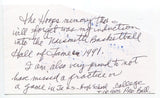 The Hoops memory tha
will forget was my induction
into the Naismith Basketball
Hall of Fame in 1991.
I am also very proud to not
have missed a practice or
a game in six